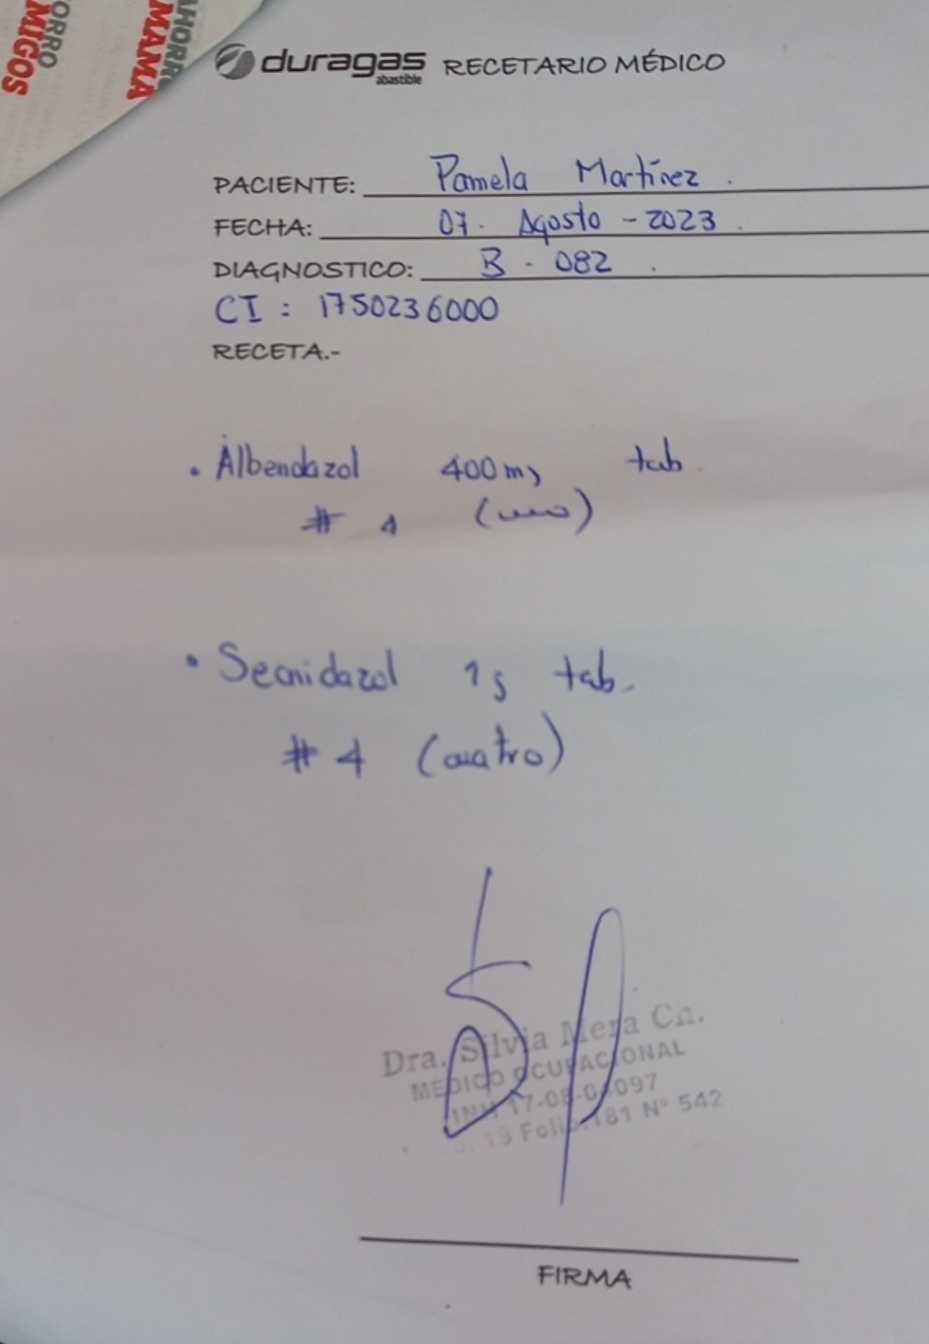 ORRO
MIGOS
AHORR
MAMÁ
duragas
abastible
RECETARIO MÉDICO
PACIENTE: Pamela Martínez.
FECHA: 07. Agosto - 2023.
DIAGNOSTICO: B - 082.
CI : 1750236000
RECETA.-
• Albendazol 400mg tab.
# 1 (uno)
• Secnidazol 1g tab.
# 4 (cuatro)
Dra. Silvia Mera
MEDICO OCUPACIONAL
Folio 181 N° 542
FIRMA